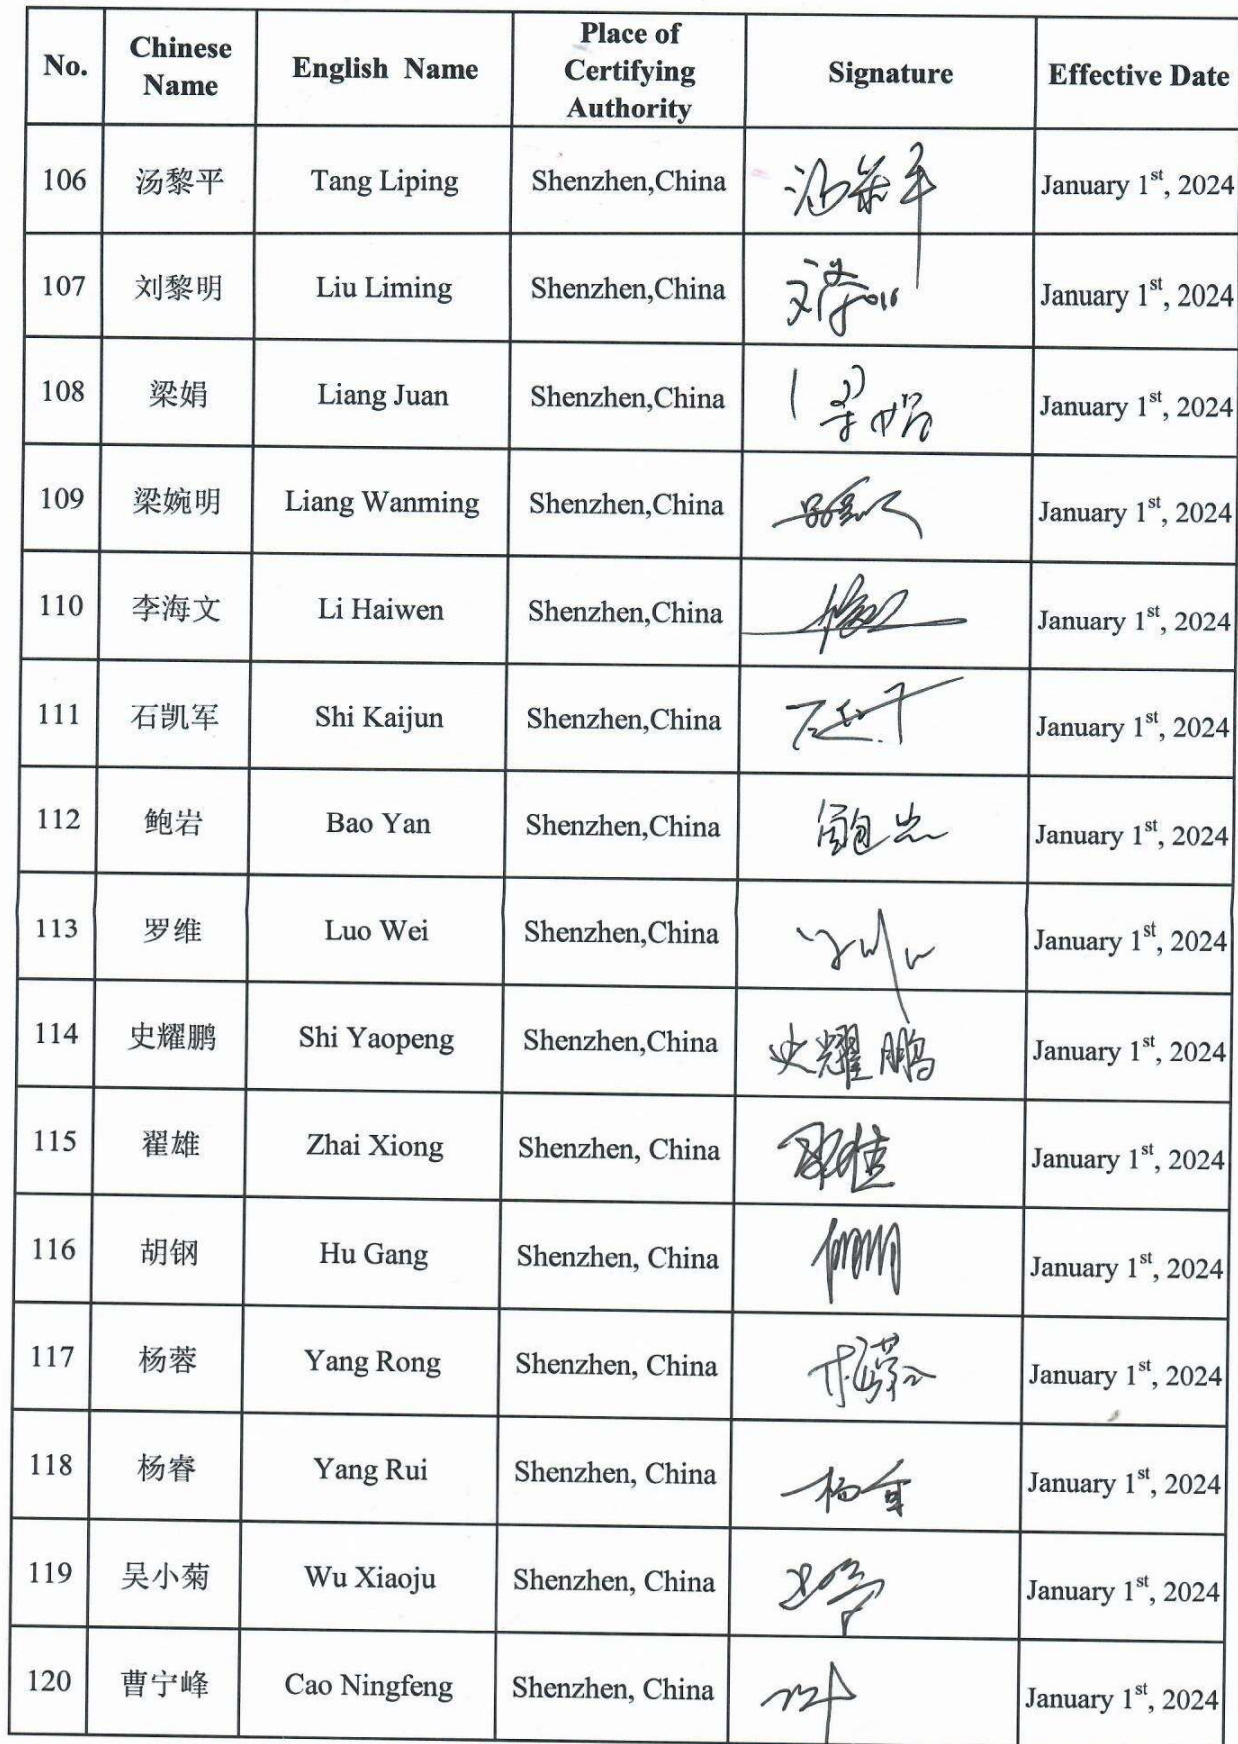 No. Chinese Name English Name Place of Certifying Authority Signature Effective Date
106 汤黎平 Tang Liping Shenzhen,China January 1st, 2024
107 刘黎明 Liu Liming Shenzhen,China January 1st, 2024
108 梁娟 Liang Juan Shenzhen,China January 1st, 2024
109 梁婉明 Liang Wanming Shenzhen,China January 1st, 2024
110 李海文 Li Haiwen Shenzhen,China January 1st, 2024
111 石凯军 Shi Kaijun Shenzhen,China January 1st, 2024
112 鲍岩 Bao Yan Shenzhen,China January 1st, 2024
113 罗维 Luo Wei Shenzhen,China January 1st, 2024
114 史耀鹏 Shi Yaopeng Shenzhen,China 史耀鹏 January 1st, 2024
115 翟雄 Zhai Xiong Shenzhen, China January 1st, 2024
116 胡钢 Hu Gang Shenzhen, China January 1st, 2024
117 杨蓉 Yang Rong Shenzhen, China January 1st, 2024
118 杨睿 Yang Rui Shenzhen, China January 1st, 2024
119 吴小菊 Wu Xiaoju Shenzhen, China January 1st, 2024
120 曹宁峰 Cao Ningfeng Shenzhen, China January 1st, 2024